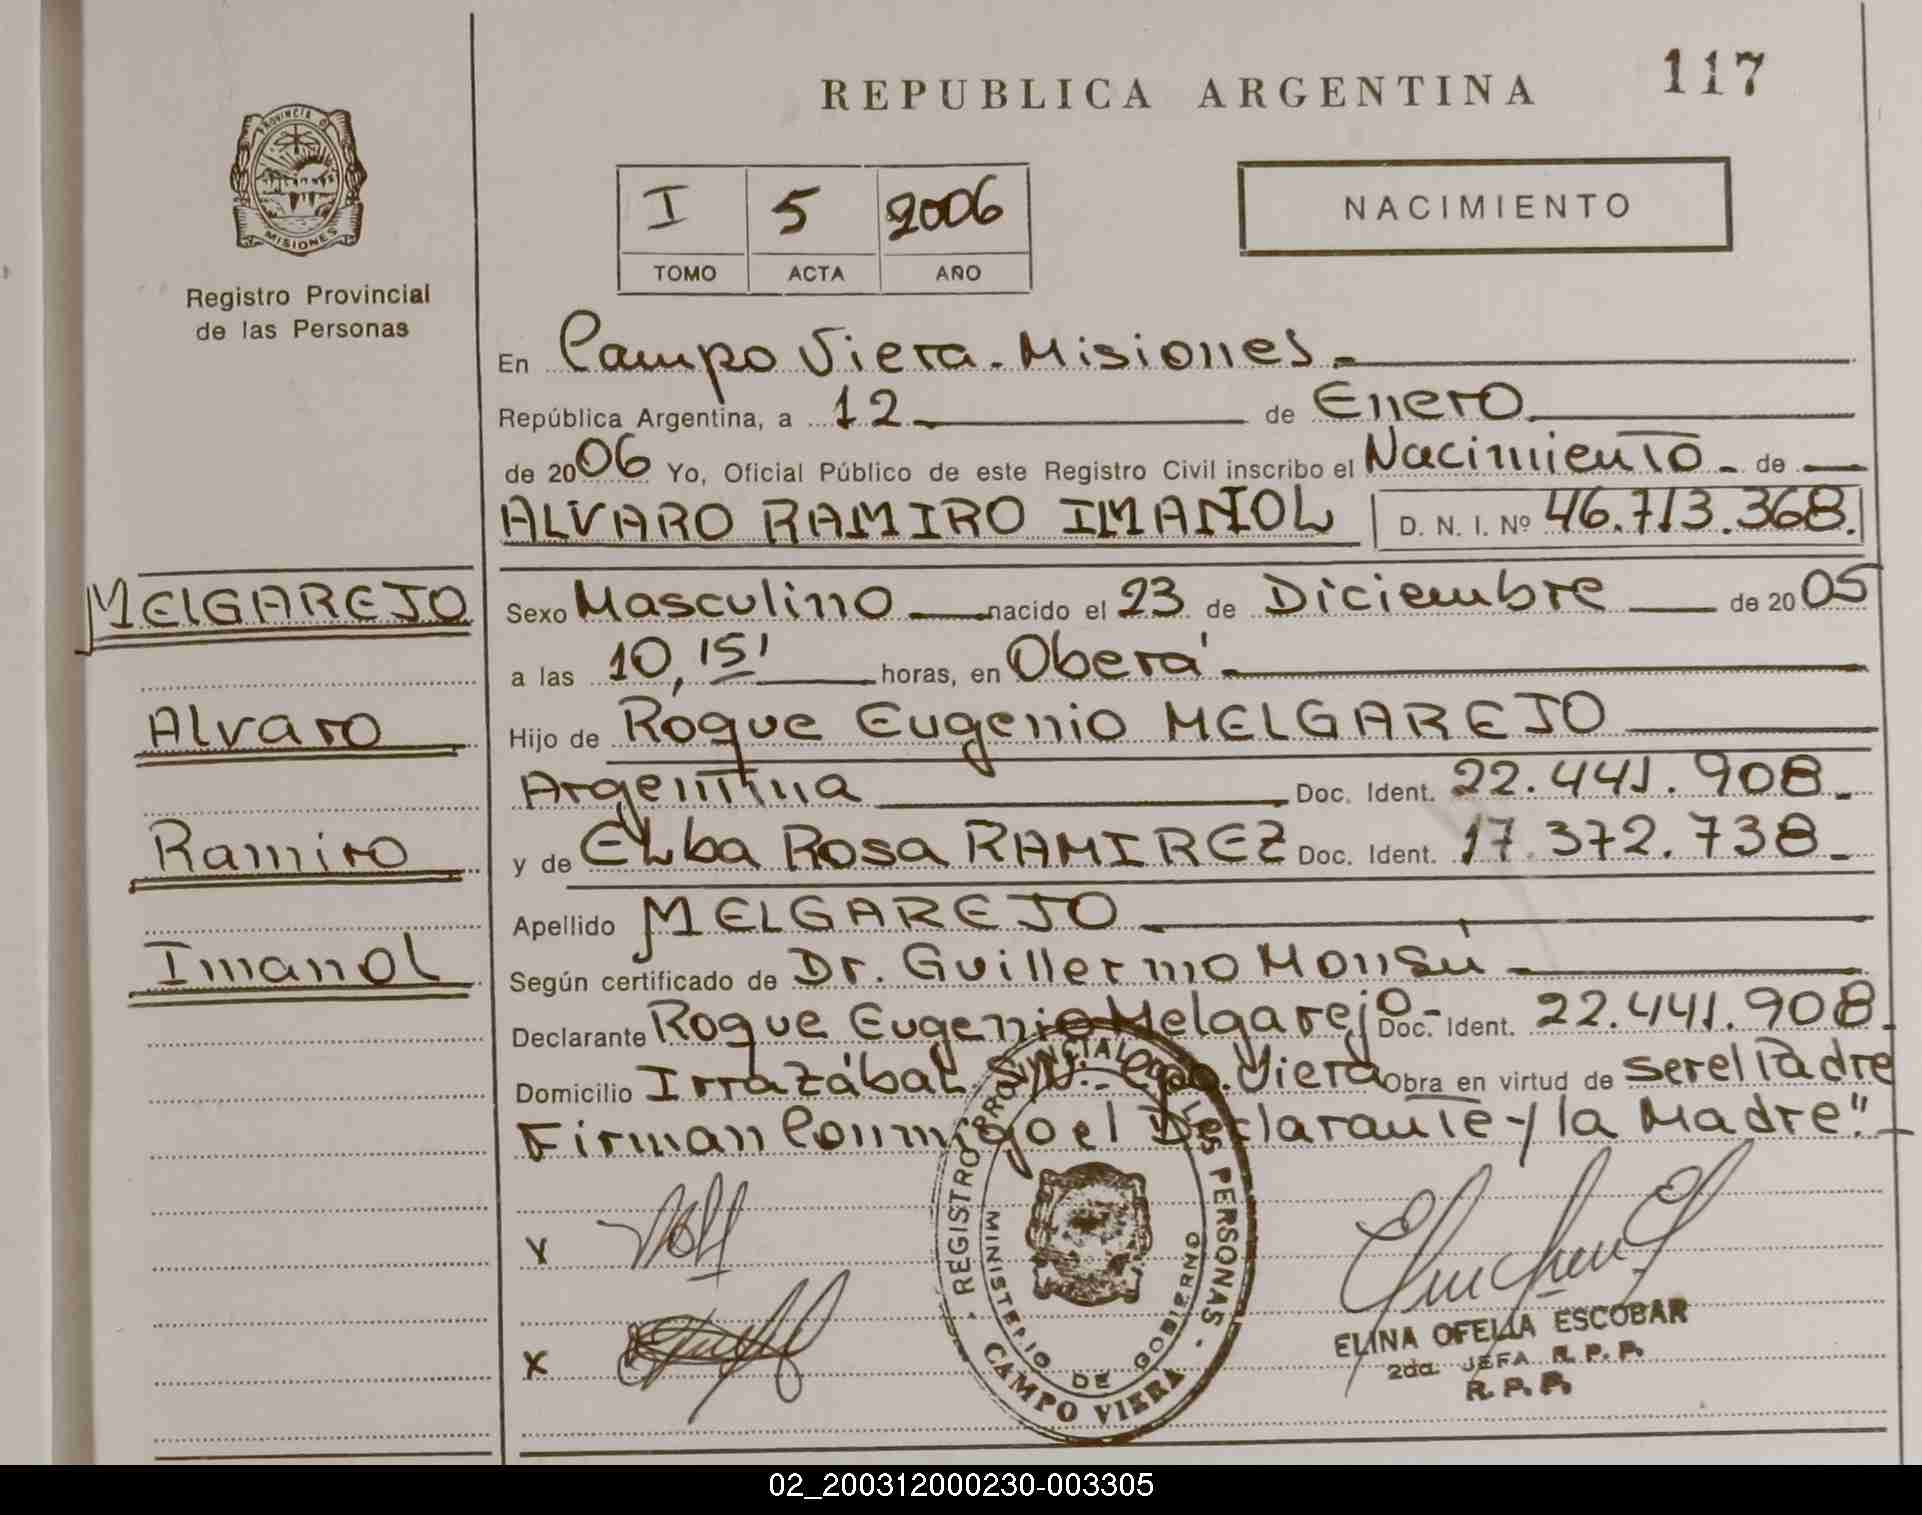 REPUBLICA ARGENTINA
117
PROVINCIA D
MISIONES
Registro Provincial
de las Personas
I 5 2006
TOMO ACTA AÑO
NACIMIENTO
En Campo Viera. Misiones.
República Argentina, a 12 de Enero
de 2006 Yo, Oficial Público de este Registro Civil inscribo el Nacimiento de
ALVARO RAMIRO IMANOL D. N. I. Nº 46.713.368.
MELGAREJO
Alvaro
Ramiro
Imanol
Sexo Masculino nacido el 23 de Diciembre de 2005
a las 10,15' horas, en Oberá
Hijo de Roque Eugenio MELGAREJO
Argentina Doc. Ident. 22.441.908.
y de Elba Rosa RAMIREZ Doc. Ident. 17.372.738
Apellido MELGAREJO
Según certificado de Dr. Guillermo Monsú
Declarante Roque Eugenio Melgarejo.- Doc. Ident. 22.441.908.
Domicilio Irrazábal S/N.- Cpo. Viera Obra en virtud de ser el Padre
Firman Conmigo el Declarante y la Madre".-
X
X
REGISTRO PROVINCIAL DE LAS PERSONAS
MINISTERIO DE GOBIERNO
CAMPO VIERA
ELINA OFELIA ESCOBAR
2da. JEFA R. P. P.
R. P. P.
02_200312000230-003305